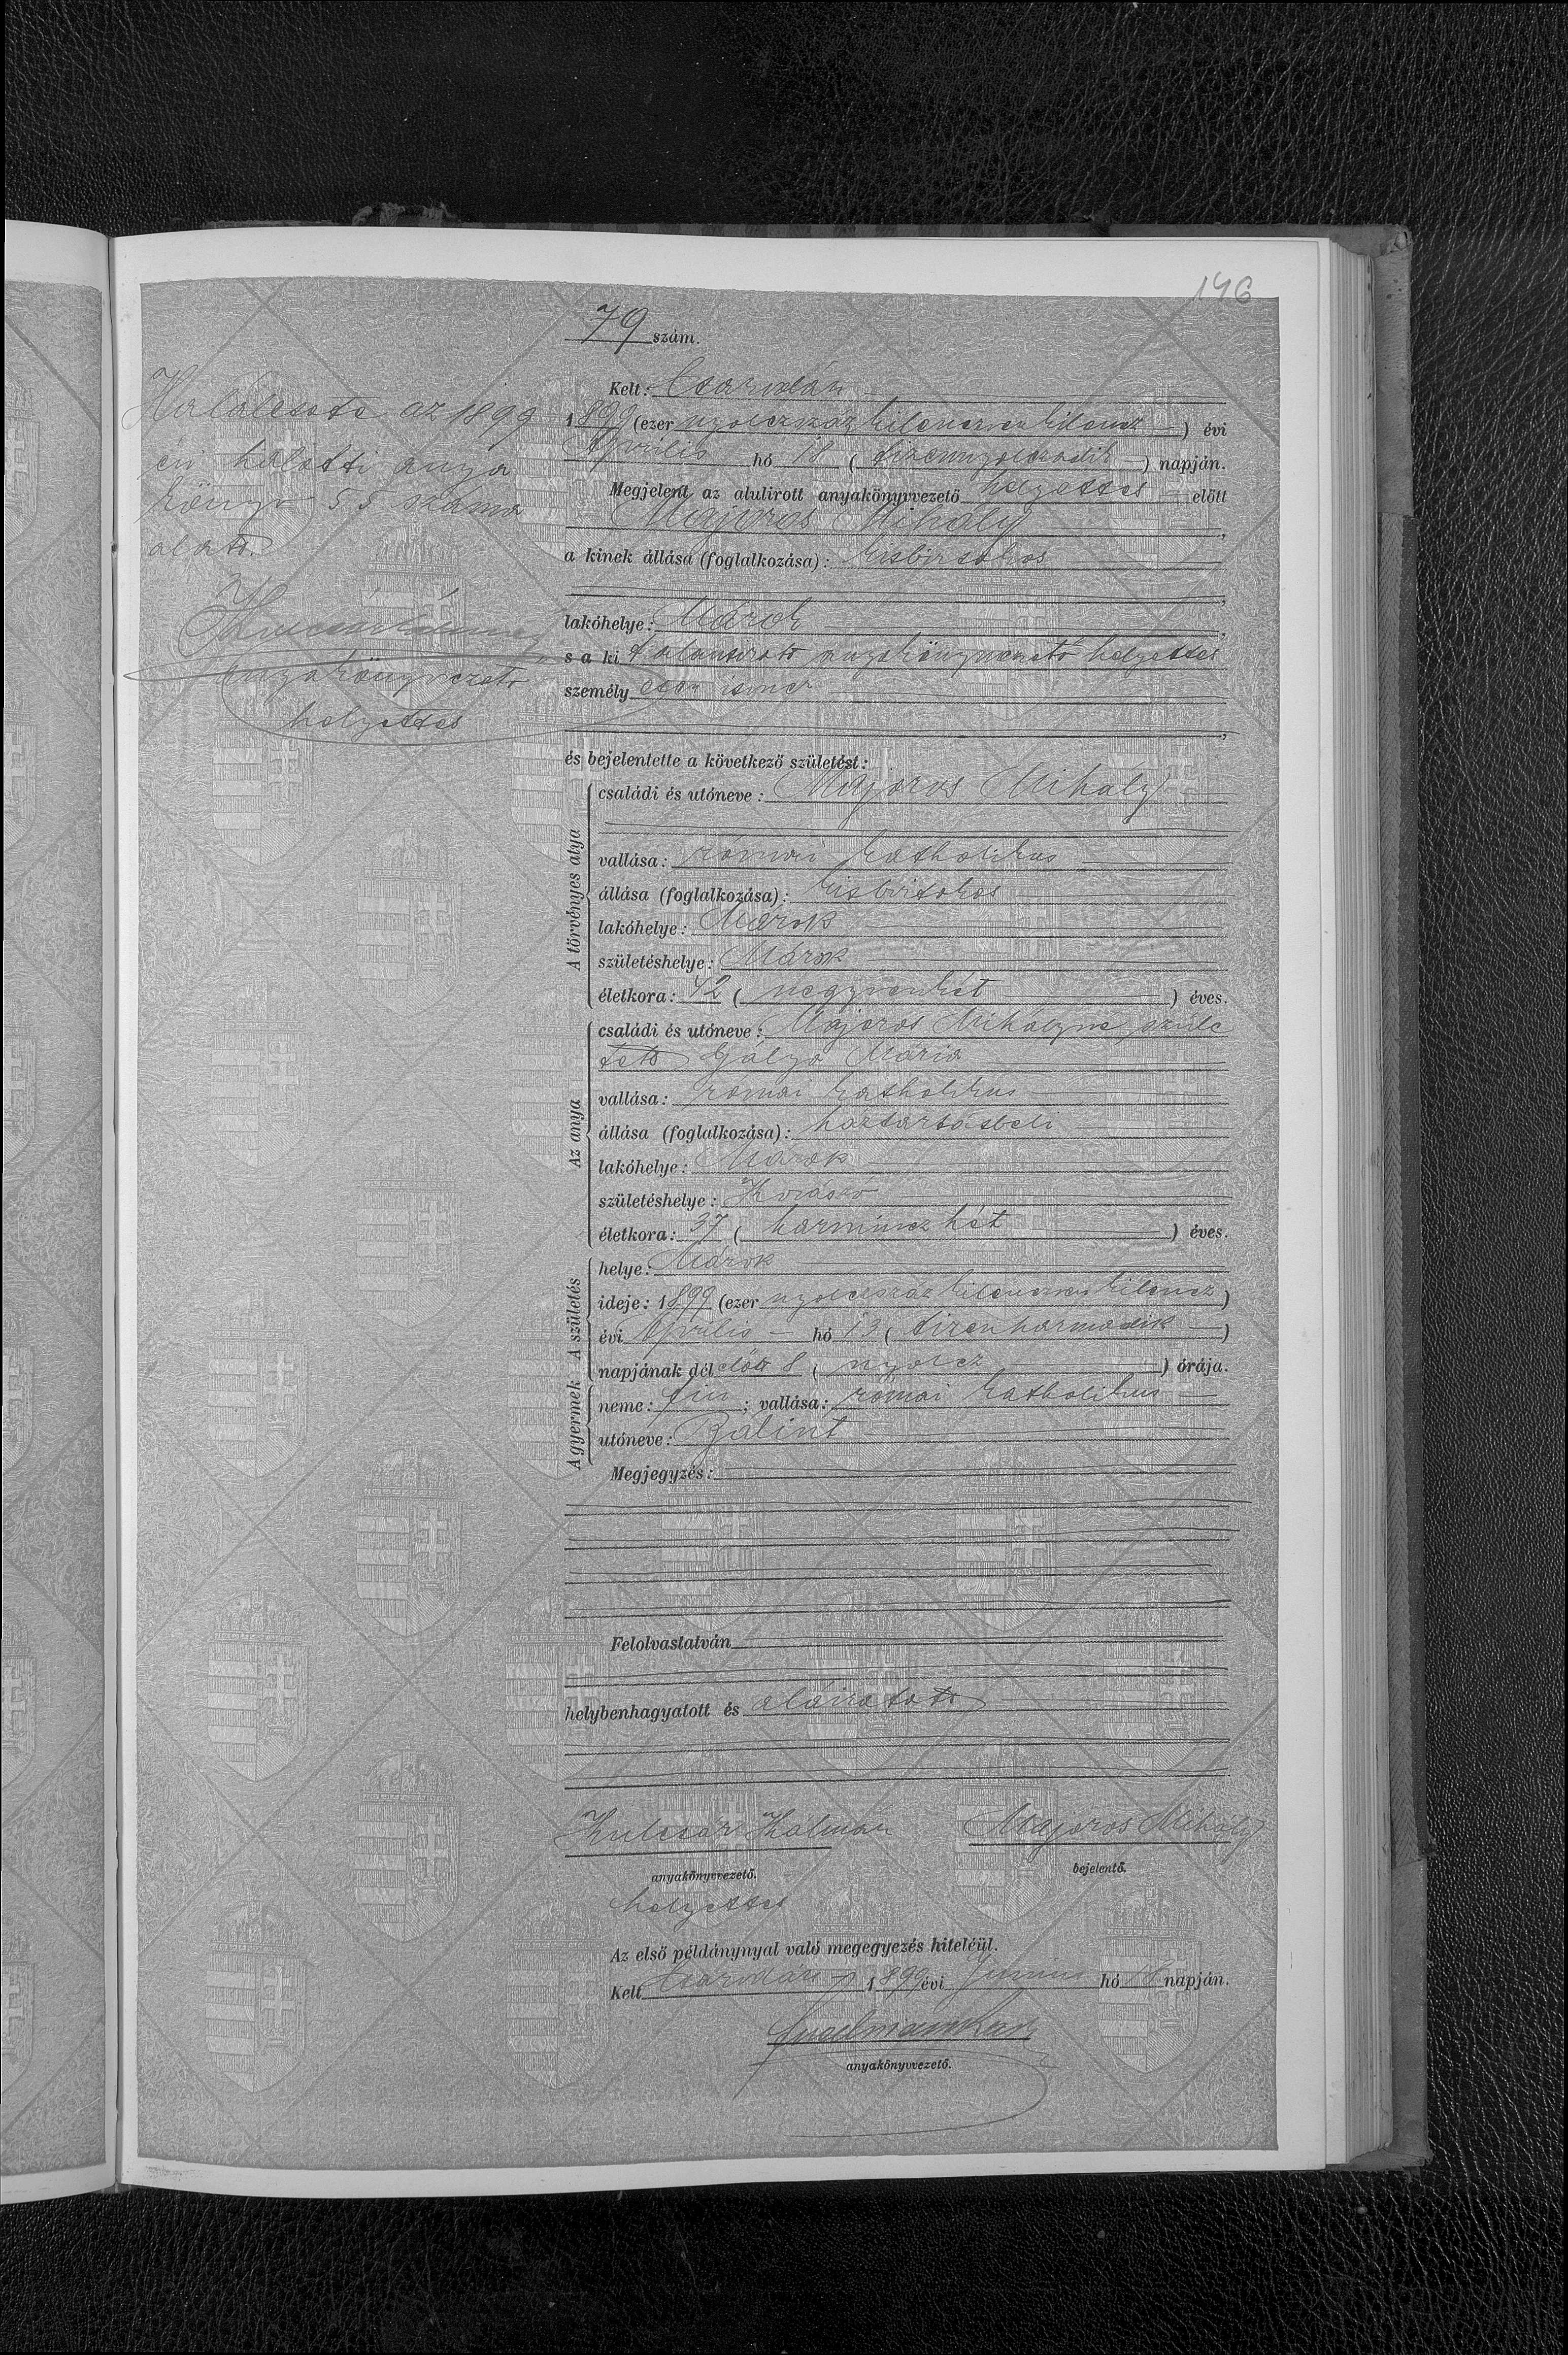 146
79 szám.
Kelt: Csarodán
1899 (ezer nyolczszáz kilenczven kilencz) évi
Április hó 18 (tizennyolczadik) napján.
Megjelent az alulirott anyakönyvvezető helyettes előtt
Majoros Mihály,
a kinek állása (foglalkozása): kisbirtokos
lakóhelye: Márok,
s a kit alantirott anyakönyvvezető helyettes
személyesen ismer
és bejelentette a következő születést:
A törvényes atya
családi és utóneve: Majoros Mihály
vallása: római katholikus
állása (foglalkozása): kisbirtokos
lakóhelye: Márok
születéshelye: Márok
életkora: 42 (negyvenkét) éves.
Az anya
családi és utóneve: Majoros Mihályné szüle
tett Gulya Mária
vallása: római katholikus
állása (foglalkozása): háztartásbeli
lakóhelye: Márok
születéshelye:
életkora: 37 (harmincz hét) éves.
A születés
helye: Márok
ideje: 1899 (ezer nyolczszáz kilenczven kilencz)
évi Április hó 13 (tizenharmadik)
napjának délelőtt 8 (nyolcz) órája.
A gyermek
neme: fiu; vallása: római katholikus
utóneve: Bálint
Megjegyzés:
Felolvastatván
helybenhagyatott és aláiratott
Kulcsár Kálmán Majoros Mihály
anyakönyvvezető. bejelentő.
helyettes
Az első példánynyal való megegyezés hiteléül.
Kelt Csarodán 1899 évi Junius hó 18 napján.
anyakönyvvezető.
Haláleset az 1899
évi halotti anya
könyv 55 száma
alatt.
Kulcsár Kálmán
anyakönyvvezető
helyettes